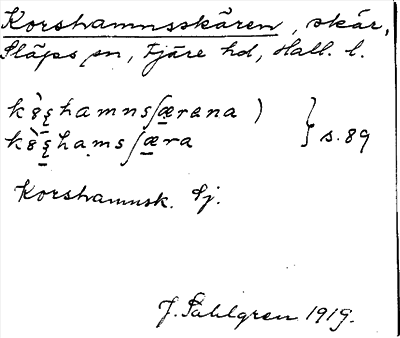 Korshamnsskären, skär,
Släps sn, Fjäre hd, Hall. l.
hamnsʃærana )
hamsʃæra } s. 89
Korshamnsk. Sj.
J. Sahlgren 1919.